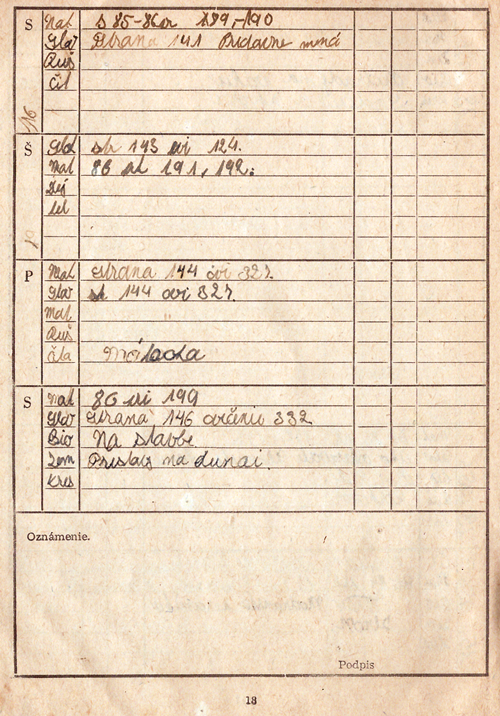 S Mat s 85-86 cv 189,-190
Slov Strana 141 Prídavné mená
Ruš
Čít
16
Š Slov str 143 cvi 124.
Mat 86 str 191, 192.
Dej
Tel
P Mat Strana 144 cvi 327.
Slov str 144 cvi 327.
Mat "
Ruš
Číta
S Mat 86 cvi 199
Slov Strana 146 cvičenie 332
Bio Na stavbe
Zem Prístav na dunai.
Kres
Oznámenie.
Podpis
18